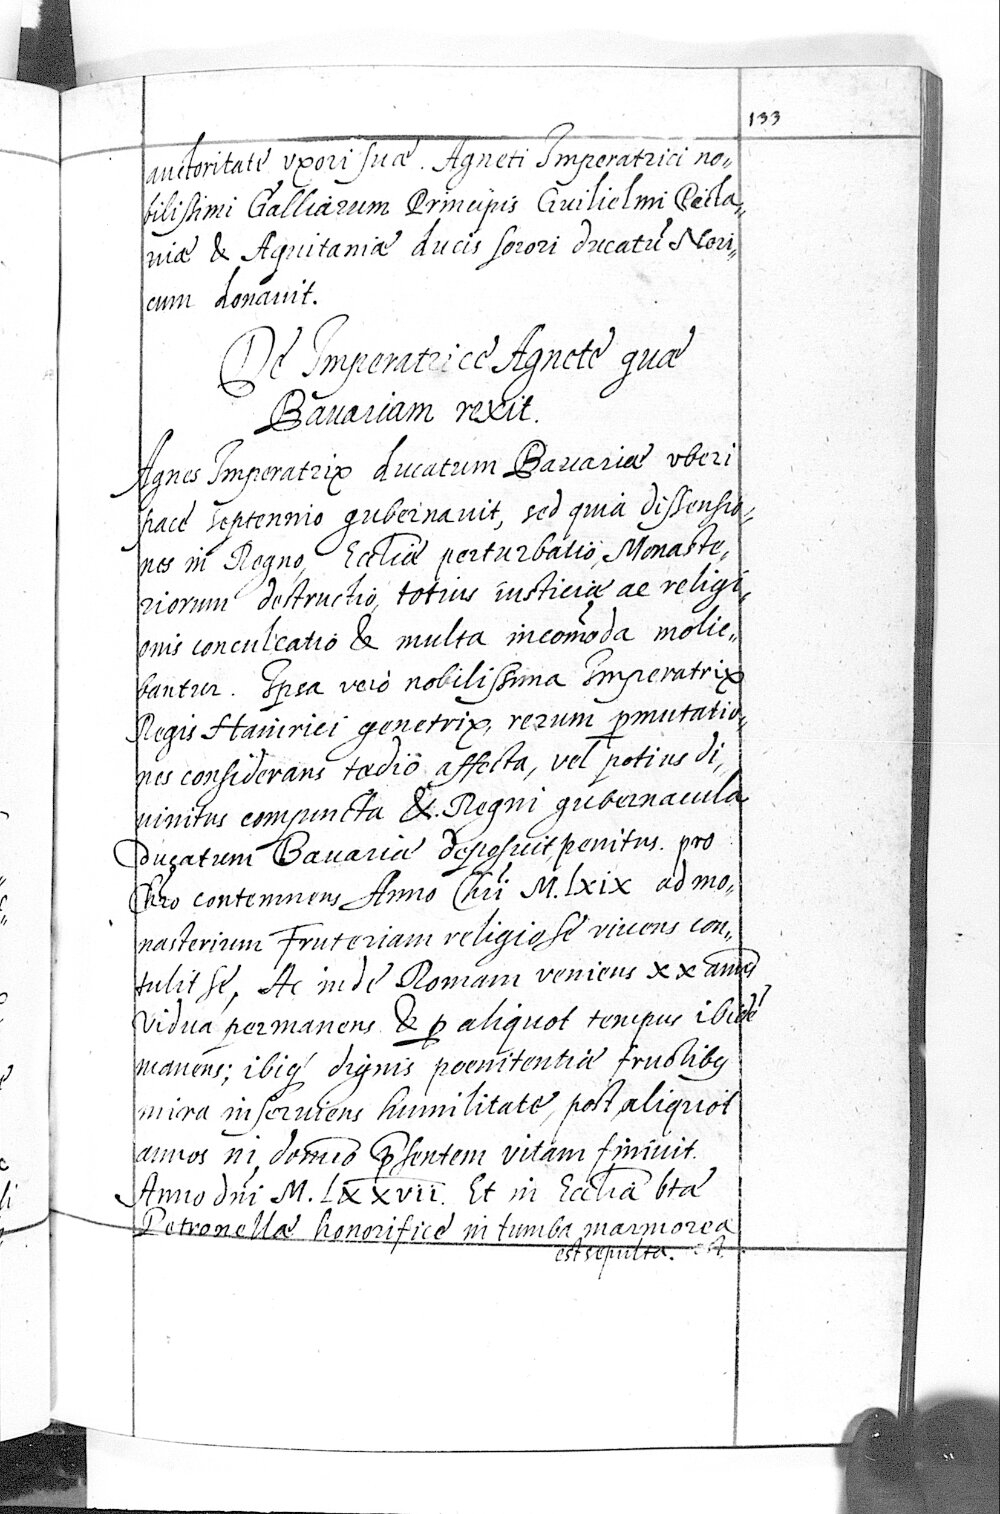 133
auctoritate vxori suæ. Agneti Imperatrici no„
bilissimi Galliarum Principis Guilielmi Picta„
viæ & Aquitaniæ ducis sorori ducatũ Nori„
cum donavit.
De Imperatrice Agnete quæ
Bauariam rexit.
Agnes Imperatrix ducatum Bauariæ vberi
pace septennio gubernauit, sed quia dissensio„
nes in Regno, Ecctiæ perturbatio, Monaste„
riorum destructio, totius iusticiæ ac religi„
onis conculcatio & multa incom̃oda molie„
bantur. Ipsa vero nobilissima Imperatrix
Regis Hainrici genetrix, rerum pmutatio„
nes considerans tædio affecta, vel potius di„
uinitus compuncta & Regni gubernacula
ducatum Bauariæ deposuit penitus. pro
Chro contemnens Anno Chri M.lxix ad mo„
nasterium Fruteriam religiose viuens con„
tulit se, Ac inde Romam veniens xx annis
vidua permanens & p aliquot tempus ibidẽ
manens; ibiq dignis poenitentiæ fructibus
mira inseruiens humilitate, post aliquot
annos in domino psentem vitam finiuit.
Anno dni M. lxxvii. Et in Ecctia btæ
Petronellæ honorifice in tumba marmorea
est sepulta. est.